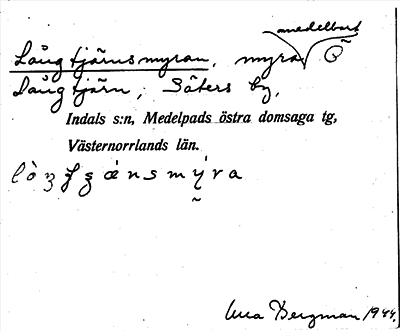 medelbart
Långtjärnsmyran, myra Ö
Långtjärn, Säters by,
Indals s:n, Medelpads östra domsaga tg,
Västernorrlands län.
Bergman 1944.